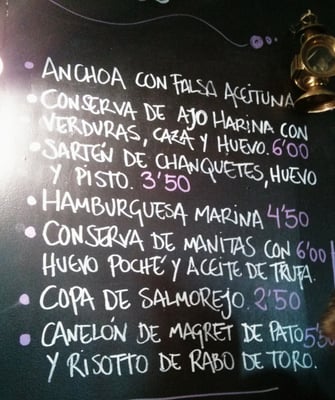 • ANCHOA CON FALSA ACEITUNA
• CONSERVA DE AJO HARINA CON
• VERDURAS, CAZA Y HUEVO. 6'00
• SARTÉN DE CHANQUETES, HUEVO
Y PISTO. 3'50
• HAMBURGUESA MARINA 4'50
• CONSERVA DE MANITAS CON 6'00
HUEVO POCHÉ Y ACEITE DE TRUFA.
• COPA DE SALMOREJO. 2'50
• CANELÓN DE MAGRET DE PATO 5'50
Y RISOTTO DE RABO DE TORO.